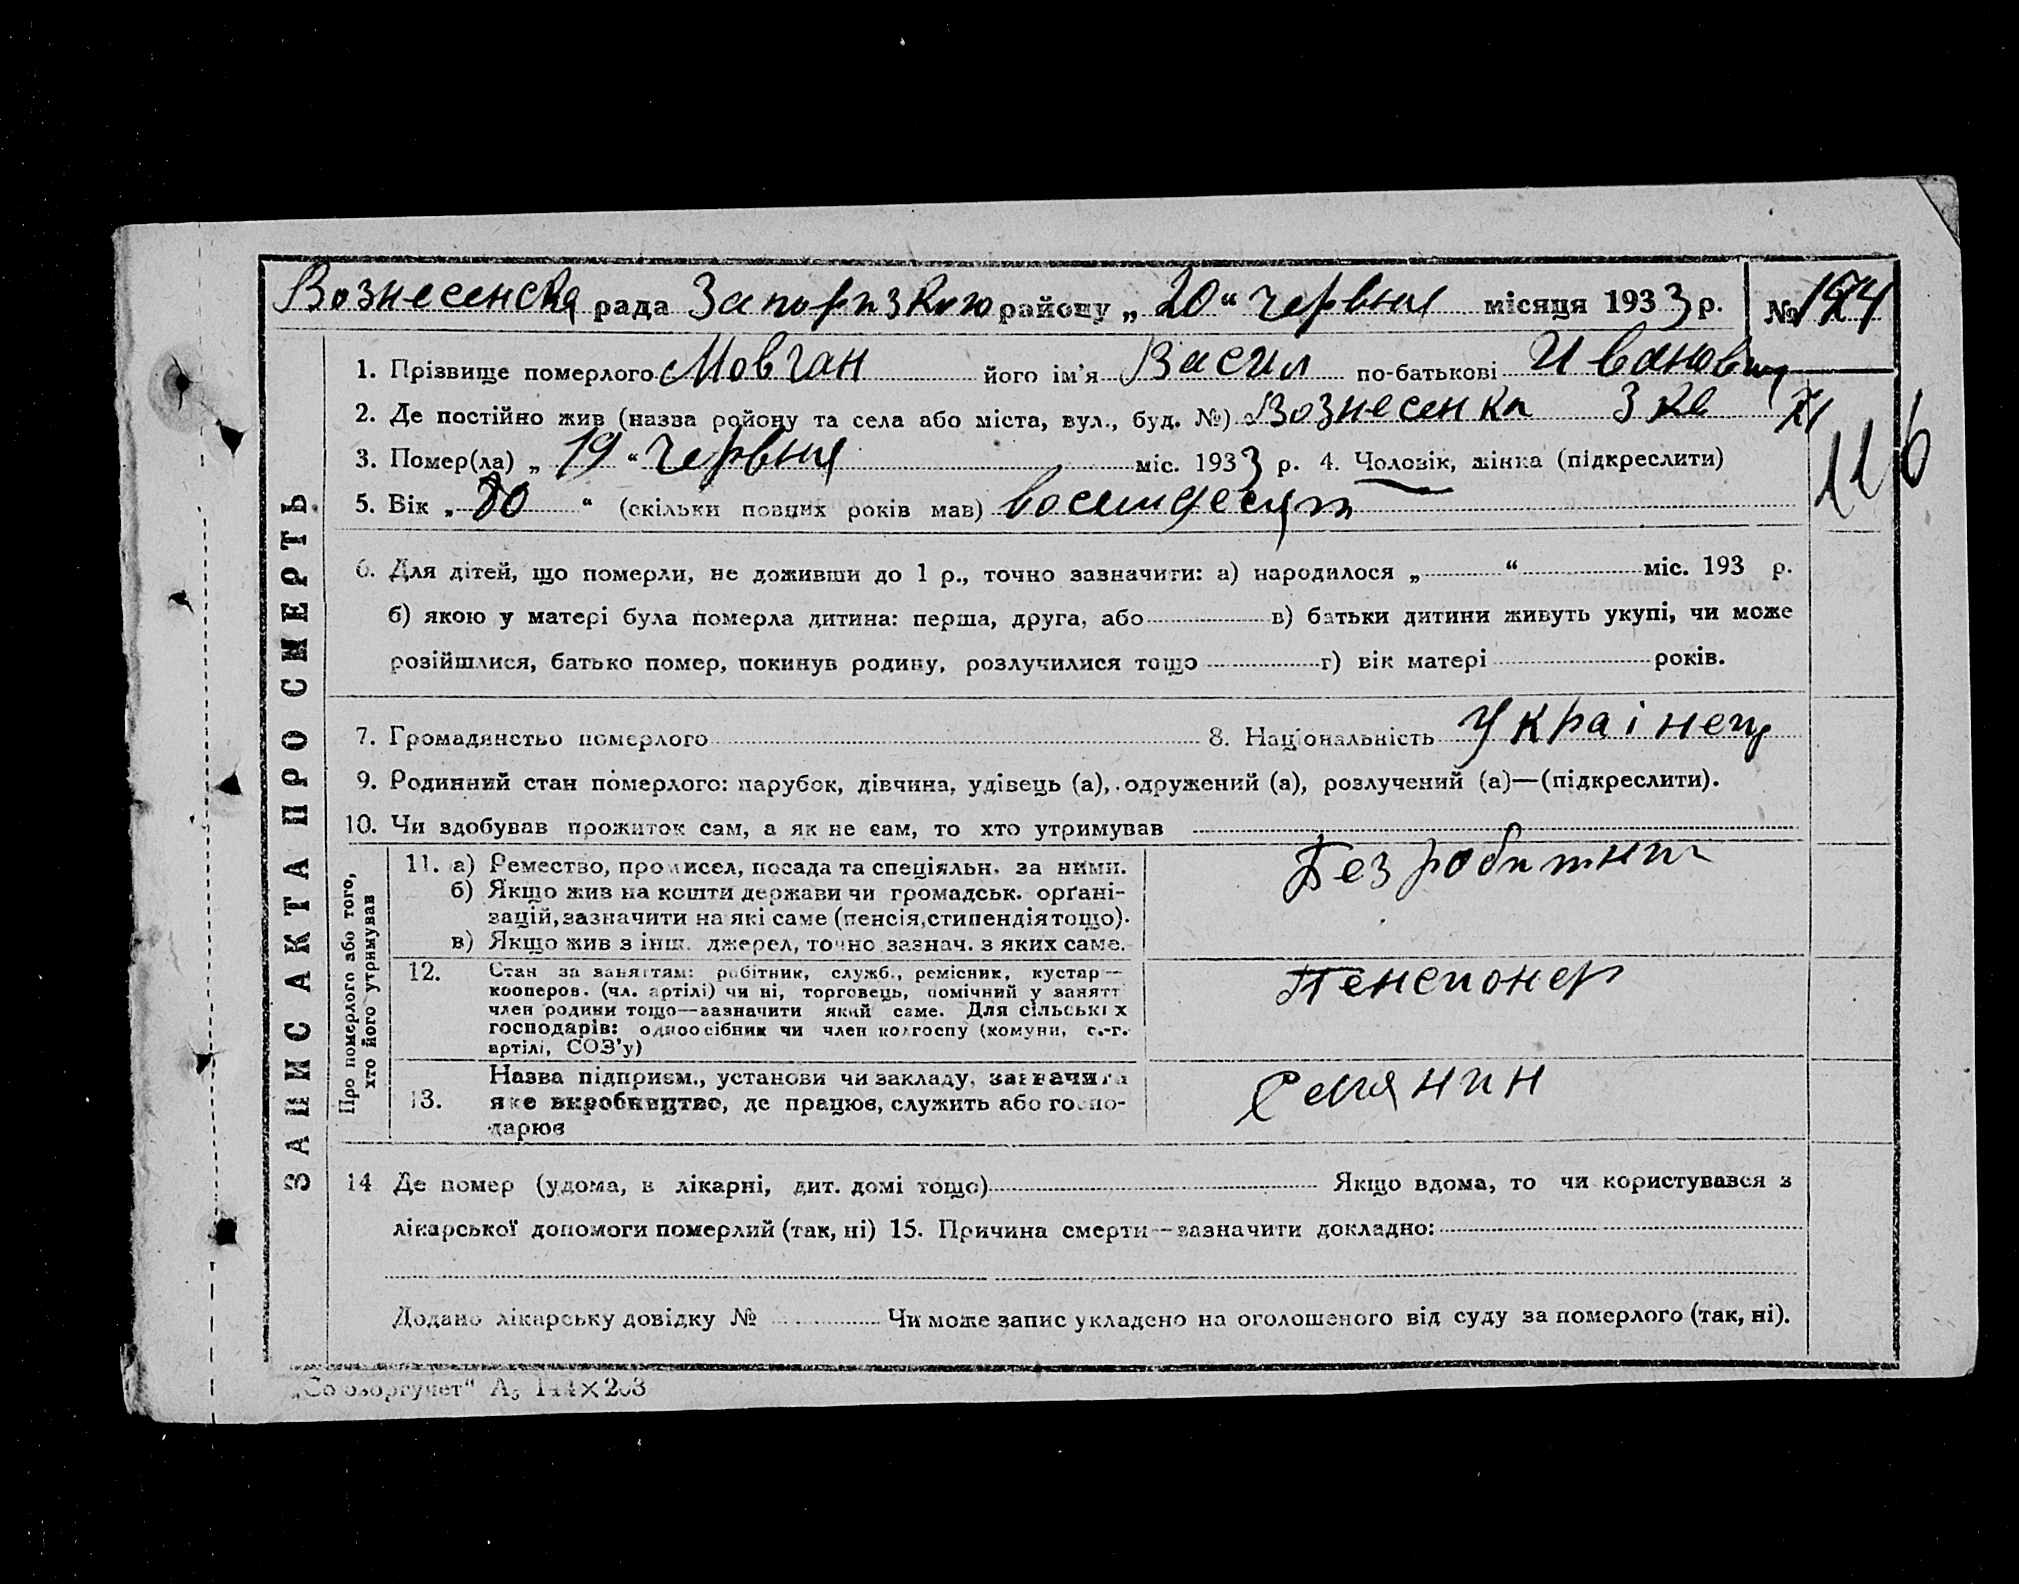 Вознесенска рада Запоризкого району „20“ червня місяця 1933 р. № 174
1. Прізвище померлого Мовчан його ім'я Васил по-батькові Иванович
2. Де постійно жив (назва району та села або міста, вул., буд. №) Вознесенка 3 кв
3. Помер(ла) „19“ червня міс. 1933 р. 4. Чоловік, жінка (підкреслити)
116
5. Вік „80“ (скільки повних років мав) восимдесят
6. Для дітей, що померли, не доживши до 1 р., точно зазначити: а) народилося „ “ міс. 193 р.
б) якою у матері була померла дитина: перша, друга, або в) батьки дитини живуть укупі, чи може
розійшлися, батько помер, покинув родину, розлучилися тощо г) вік матері років.
7. Громадянство померлого 8. Національність Украінец
9. Родинний стан померлого: парубок, дівчина, удівець (а), одружений (а), розлучений (а)—(підкреслити).
10. Чи здобував прожиток сам, а як не сам, то хто утримував
Про померлого або того,
хто його утримував
11. а) Ремество, промисел, посада та спеціяльн. за ними.
б) Якщо жив на кошти держави чи громадськ. орґані-
зацій, зазначити на які саме (пенсія, стипендія тощо).
в) Якщо жив з інш. джерел, точно зазнач. з яких саме.
Безробитний
12. Стан за заняттям: робітник, служб., ремісник, кустар—
кооперов. (чл. артілі) чи ні, торговець, помічний у занятт
член родини тощо—зазначити який саме. Для сільських
господарів: одноосібник чи член колгоспу (комуни, с.-г.
артілі, СОЗ'у)
Пенсионер
13. Назва підприєм., установи чи закладу, зазначити
яке виробництво, де працює, служить або госпо-
дарює
Селянин
14 Де помер (удома, в лікарні, дит. домі тощо) Якщо вдома, то чи користувався з
лікарської допомоги померлий (так, ні) 15. Причина смерти—зазначити докладно:
Додано лікарську довідку № Чи може запис укладено на оголошеного від суду за померлого (так, ні).
ЗАПИС АКТА ПРО СМЕРТЬ
„Союзоргучет“ А₅ 144×203